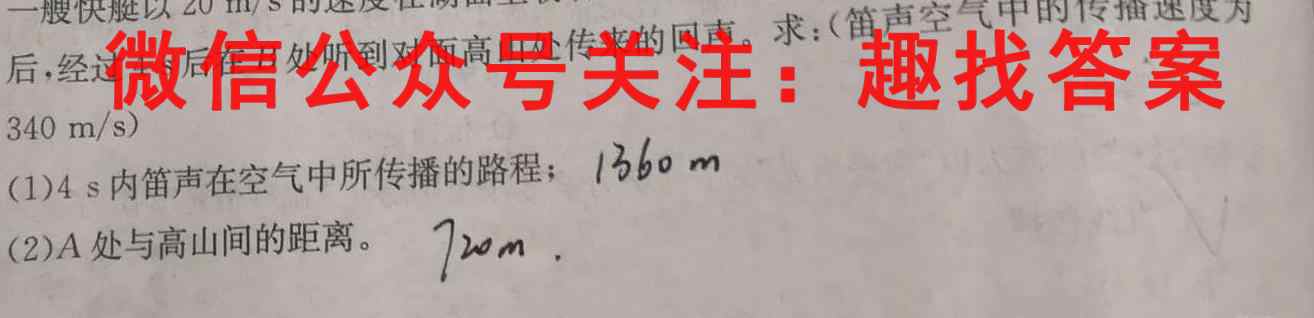 一艘快艇以 20 m/s 的速度在湖面上
后,经过 4 s 后在 B 处听到对面高山处传来的回声。求:(笛声空气中的传播速度为
微信公众号关注：趣找答案
340 m/s)
(1)4 s 内笛声在空气中所传播的路程; 1360 m
(2)A 处与高山间的距离。 720m .